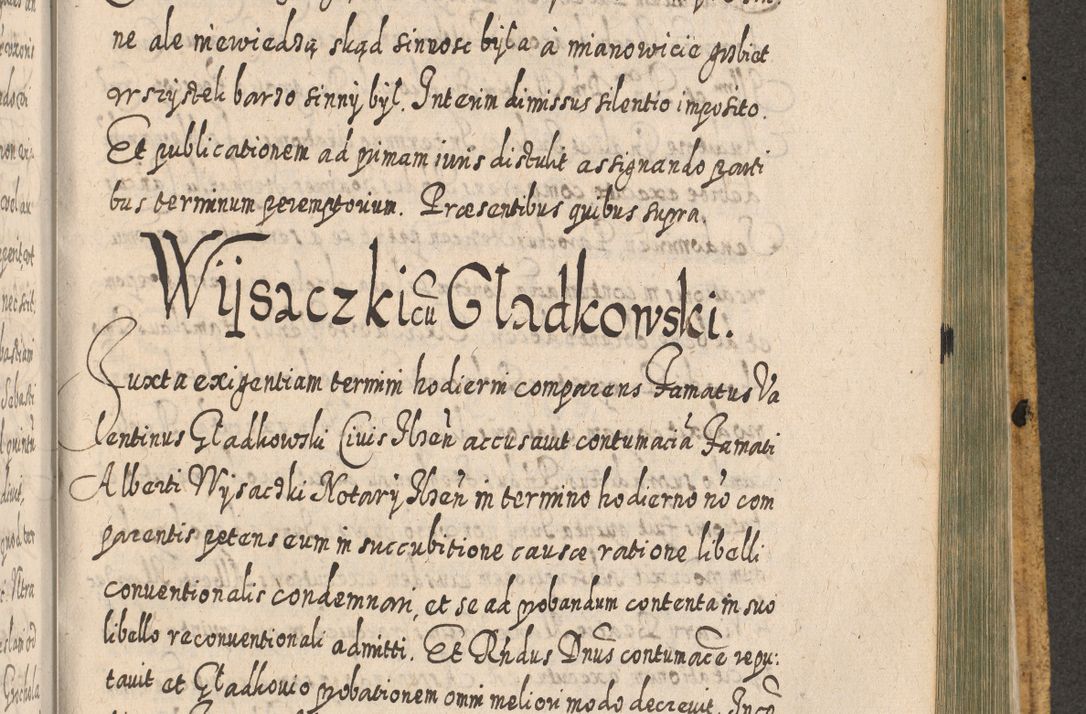 ne ale niewiedzą skąd sinnosc była à mianowicie grzbiet
wszystek barzo sinny był. Interim dimissus silentio imposito.
Et publicationem ad primam iuris distulit assignando parti
bus terminum peremptorium. Præsentibus quibus supra.
Wijsaczki cũ Gladkowski.
Juxta exigentiam termini hodierni comparens Famatus Va
lentinus Gładkowski Civis Ilzeñ accusavit contumaciã Famati
Alberti Wysaczki Notary Ilzeñ in termino hodierno nõ com
parentis petens eum in succubitione causæ ratione libelli
conventionalis condemnari, et se ad probandum contenta in suo
libello reconventionali admitti. Et Rñdus Dñus contumacẽ repu-
tavit et Gładkovio probationem omni meliori modo decrevit.